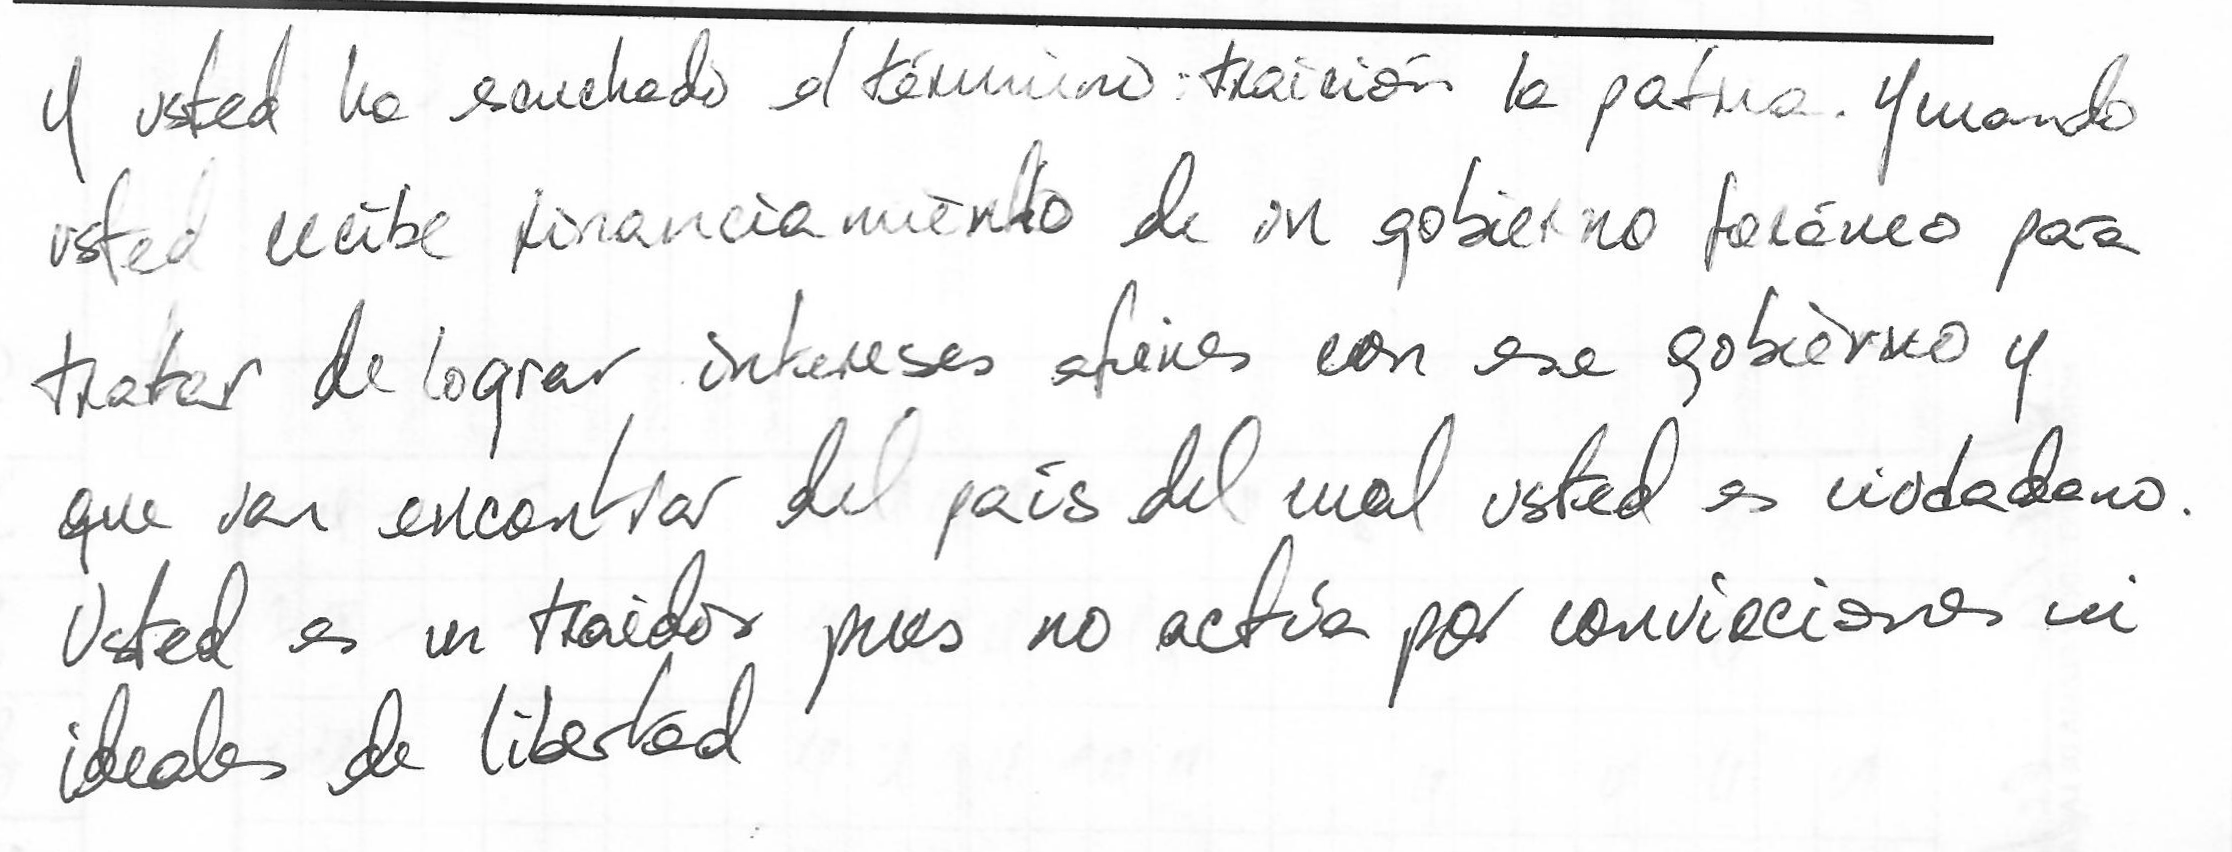 Y usted ha escuchado el término: traición la patria. Y cuando
usted recibe financiamiento de un gobierno foráneo para
tratar de lograr intereses afines con ese gobierno y
que van encontrar del país del cual usted es ciudadano.
Usted es un traidor pues no actúa por convicciones ni
ideales de libertad